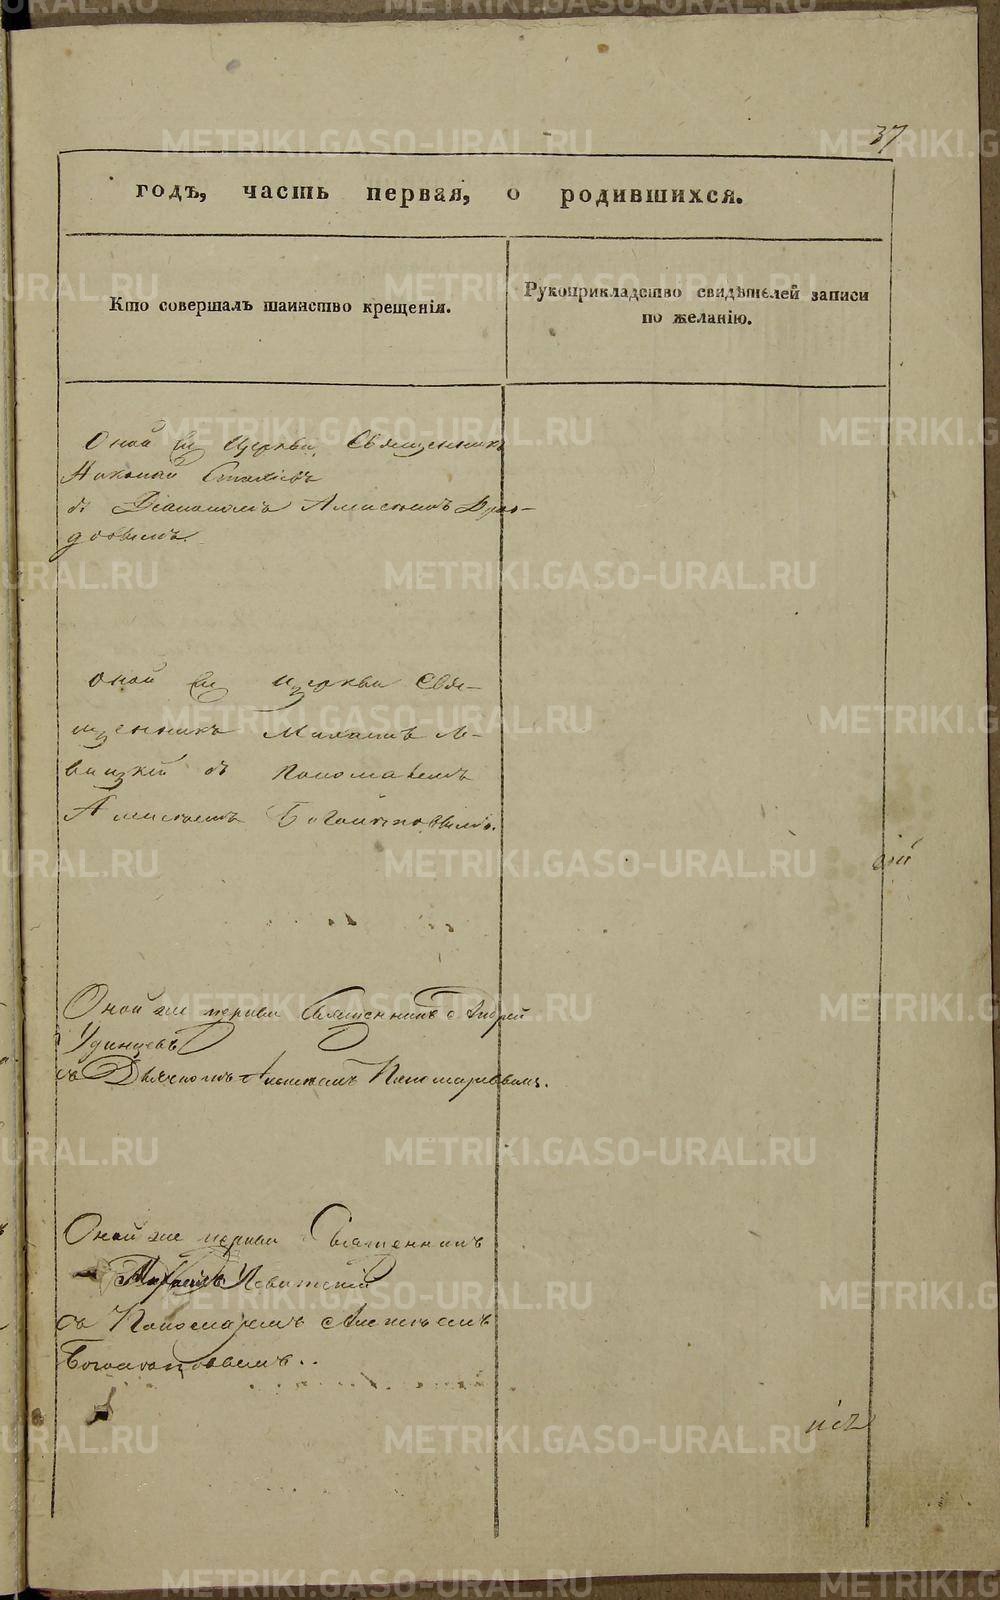 37
годъ, часть первая, о родившихся.
Кто совершалъ таинство крещенія.
Рукоприкладство свидѣтелей записи
по желанію.
Оной же Церкви Священникъ
Николай
съ Діакономъ Алексіемъ
Оной же церкви Свя-
щенникъ Михаилъ Ле-
вицкій съ Пономаремъ
Алексѣемъ
Оной же церкви Священникъ Андрей
Удинцевъ
съ Дьячкомъ Пономаревымъ.
Оной же церкви Священникъ
Михаилъ Левитскій
съ Пономаремъ Алексѣемъ
METRIKI.GASO-URAL.RU